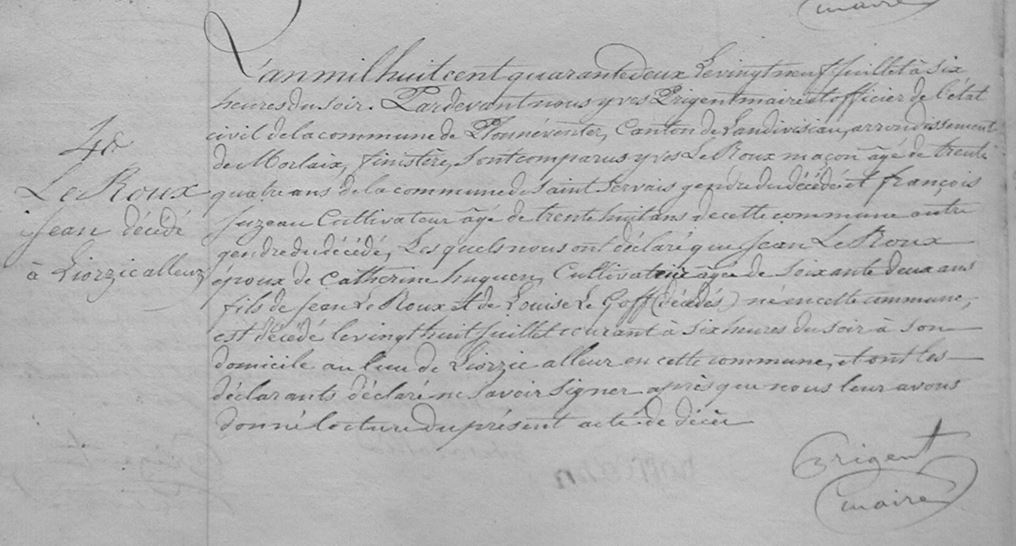 maire
L'an mil huit cent quarante deux le vingt neuf Juillet à six
heures du soir. Pardevant nous yves Prigent maire et officier de l'état
civil de la commune de Plounéventer, Canton de Landivisiau, arrondissement
de Morlaix, finistère, sont comparus yves Le Roux maçon âgé de trente
quatre ans de la commune de Saint Servais gendre du décédé et françois
Juzeau Cultivateur âgé de trente huit ans de cette commune autre
gendre du décédé, Lesquels nous ont déclaré que Jean Le Roux
époux de Catherine huguen, Cultivateur âgée de soixante deux ans
fils de Jean Le Roux et de Louise Le Goff (décédés) né en cette commune,
est décédé le vingt huit Juillet courant à six heures du soir à son
domicile au lieu de Liorzic alleur en cette commune, et ont les
déclarants déclaré ne savoir signer après que nous leur avons
donné lecture du présent acte de décès
Le Roux
Jean décédé
à Liorzic alleur
Prigent
maire